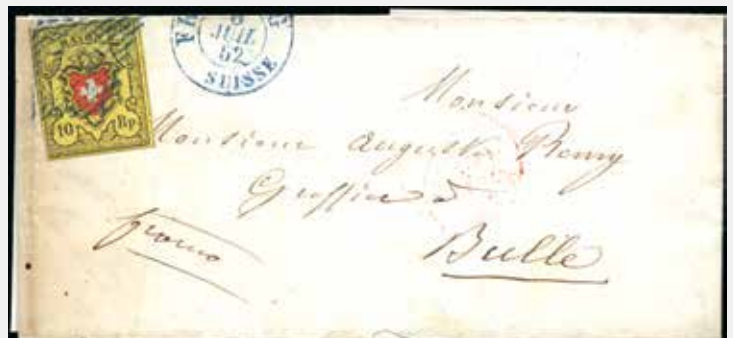 10 Rp
JUIL
52
SUISSE
Monsieur
Monsieur Auguste Remy
Greffier à
Bulle
franco